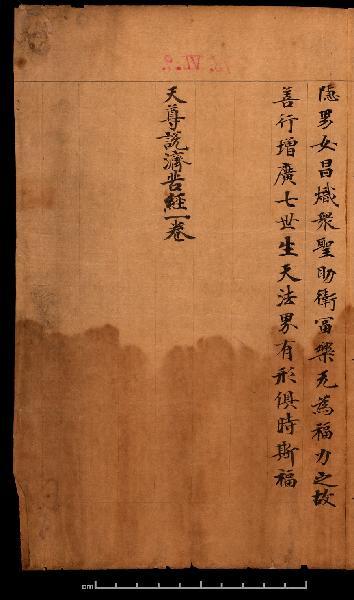 隱男女昌熾衆聖助衛富樂无爲福力之故
善行增廣七世生天法界有形俱時斯福
天尊說濟苦經一卷
cm